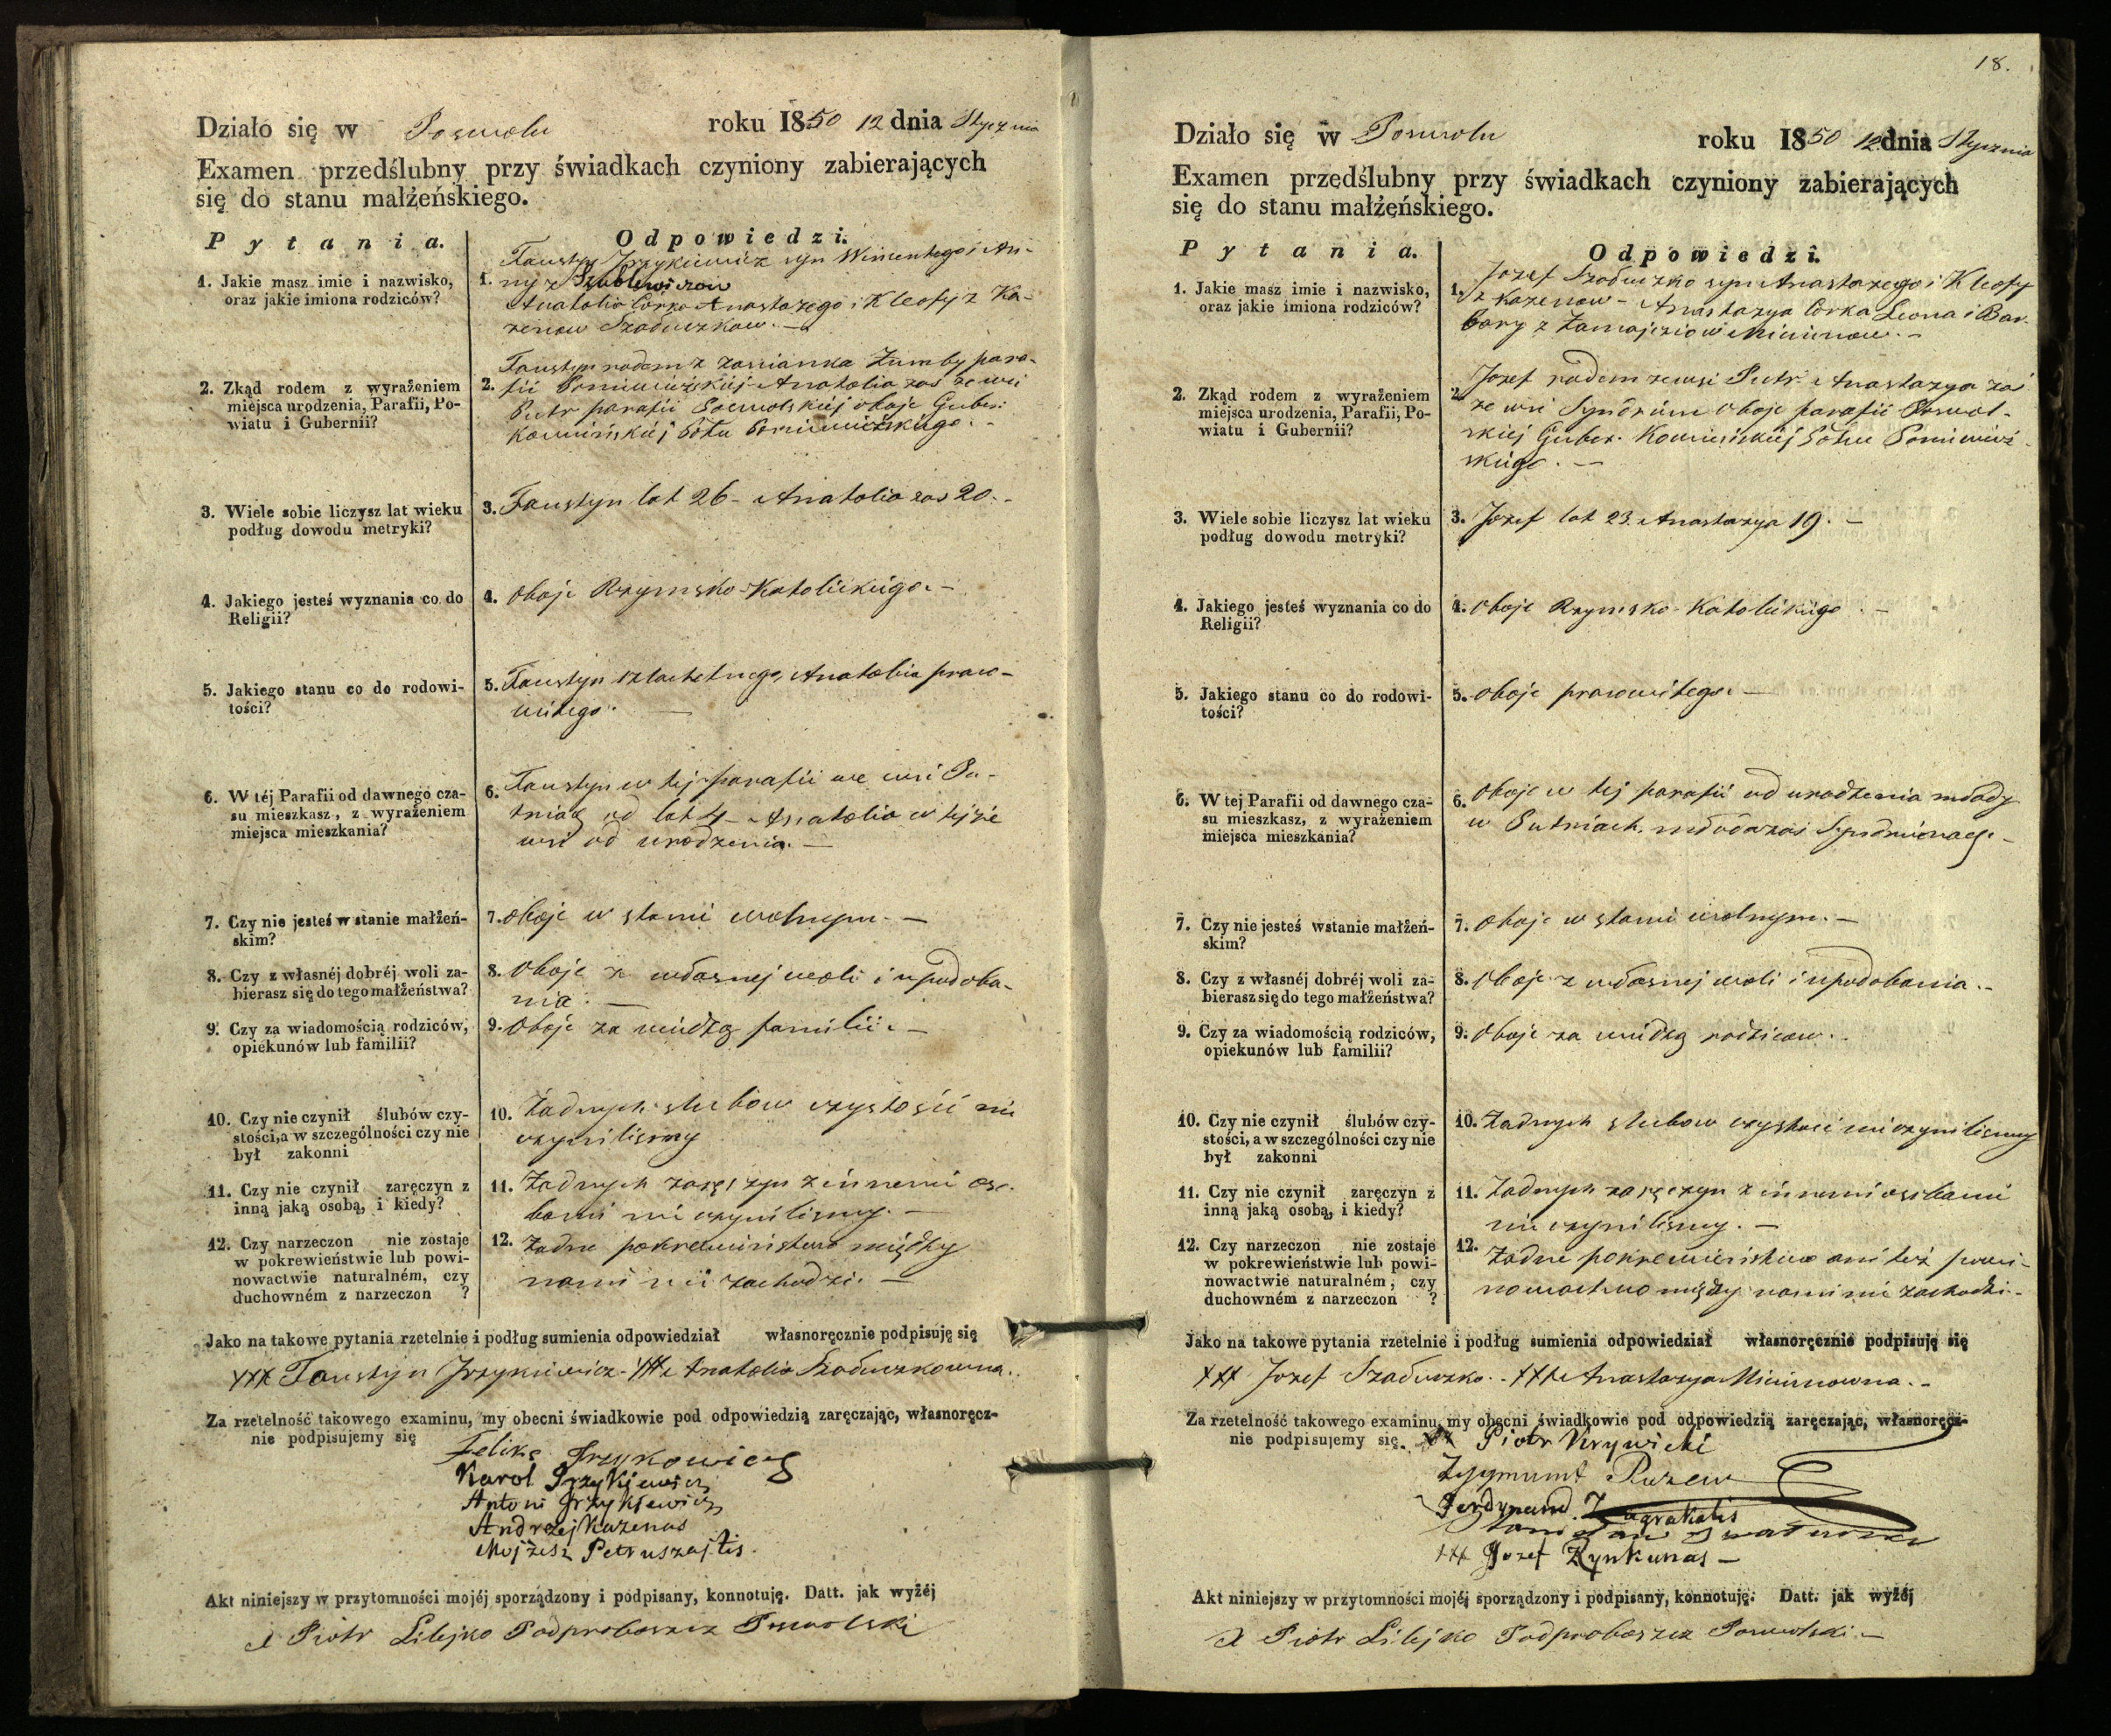 Działo się w Poswolu roku 1850 12 dnia Stycznia
Examen przedślubny przy świadkach czyniony zabierających
się do stanu małżeńskiego.
Pytania.
Odpowiedzi.
1. Jakie masz imie i nazwisko,
oraz jakie imiona rodziców?
1. Faustyn Jrzykiewicz syn Wincentego i An-
ny z
Anatolia Corka Anastazego i Kleofy z Ka-
zenow Szaduszkow. —
2. Zkąd rodem z wyrażeniem
miejsca urodzenia, Parafii, Po-
wiatu i Gubernii?
2. Faustyn rodem z zascianka Zumby para-
fii Poniewieżskiej Anatolia zas ze wsi
Putr parafii Poswolskiej oboje Guber:
Kowieńskiej Pōtu Poniewieżskiego. -
3. Wiele sobie liczysz lat wieku
podług dowodu metryki?
3. Faustyn lat 26 - Anatolia zas 20. -
4. Jakiego jesteś wyznania co do
Religii?
4. Oboje Rzymsko-Katolickiego. —
5. Jakiego stanu co do rodowi-
tości?
5. Faustyn szlachetnego, Anatolia praco-
witego. —
6. W téj Parafii od dawnego cza-
su mieszkasz, z wyrażeniem
miejsca mieszkania?
6. Faustyn w tej parafii we wsi Pu-
od lat 4 - Anatolia w tejże
wsi od urodzenia. —
7. Czy nie jesteś w stanie małżeń-
skim?
7. Oboje w stanie wolnym. —
8. Czy z własnéj dobréj woli za-
bierasz się do tego małżeństwa?
8. Oboje z własnej woli i upodoba-
nia. —
9. Czy za wiadomością rodziców,
opiekunów lub familii?
9. Oboje za wiedzą familii. —
10. Czy nie czynił ślubów czy-
stości, a w szczególności czy nie
był zakonni
10. Żadnych slubow czystości nie
czynilismy
11. Czy nie czynił zaręczyn z
inną jaką osobą, i kiedy?
11. Żadnych zaręczyn z innemi oso-
bami nie czynilismy. —
12. Czy narzeczon nie zostaje
w pokrewieństwie lub powi-
nowactwie naturalném, czy
duchowném z narzeczon ?
12. Żadne pokrewieństwo między
nami nie zachodzi. —
Jako na takowe pytania rzetelnie i podług sumienia odpowiedział własnoręcznie podpisuję się
xxx Faustyn Jrzykiewicz - xxx Anatolia Szaduszkowna.
Za rzetelność takowego examinu, my obecni świadkowie pod odpowiedzią zaręczając, własnoręcz-
nie podpisujemy się
Felix Jrzykowicz
Karol Jrzykiewicz
Antoni Jrzykiewicz
Andrzej Kazenas
Mojżesz Petruszajtis.
Akt niniejszy w przytomności mojéj sporządzony i podpisany, konnotuję. Datt. jak wyżéj
X Piotr Lilejko Podproboszcz Poswolski
18.
Działo się w Poswolu roku 1850 12 dnia Stycznia
Examen przedślubny przy świadkach czyniony zabierających
się do stanu małżeńskiego.
Pytania.
Odpowiedzi.
1. Jakie masz imie i nazwisko,
oraz jakie imiona rodziców?
1. Jozef Szaduszko syn Anastazego i Kleofy
z Kazenow - Anastazya Corka Leona i Bar-
bary z
2. Zkąd rodem z wyrażeniem
miejsca urodzenia, Parafii, Po-
wiatu i Gubernii?
2. Jozef rodem ze wsi Putr Anastazya zaś
ze wsi oboje parafii Poswol-
skiej Guber. Kowieńskiej Pōtu Poniewież-
skiego. —
3. Wiele sobie liczysz lat wieku
podług dowodu metryki?
3. Jozef lat 23. Anastazya 19. —
4. Jakiego jesteś wyznania co do
Religii?
4. Oboje Rzymsko-Katolickiego. —
5. Jakiego stanu co do rodowi-
tości?
5. Oboje pracowitego. —
6. W tej Parafii od dawnego cza-
su mieszkasz, z wyrażeniem
miejsca mieszkania?
6. Oboje w tej parafii od urodzenia młody
w Putriach, młoda zaś
7. Czy nie jesteś wstanie małżeń-
skim?
7. Oboje w stanie wolnym. —
8. Czy z własnéj dobréj woli za-
bierasz się do tego małżeństwa?
8. Oboje z własnej woli i upodobania. -
9. Czy za wiadomością rodziców,
opiekunów lub familii?
9. Oboje za wiedzą rodzicow. -
10. Czy nie czynił ślubów czy-
stości, a w szczególności czy nie
był zakonni
10. Żadnych slubow czystosci nie czynilismy
11. Czy nie czynił zaręczyn z
inną jaką osobą, i kiedy?
11. Żadnych zaręczyn z innemi osobami
nie czynilismy. —
12. Czy narzeczon nie zostaje
w pokrewieństwie lub powi-
nowactwie naturalném, czy
duchowném z narzeczon ?
12. Żadne pokrewieństwo ani też powi-
nowactwo między nami nie zachodzi -
Jako na takowe pytania rzetelnie i podług sumienia odpowiedział własnoręcznie podpisuję się
xxx Jozef Szaduszko. - xxx Anastazya Micunowna. -
Za rzetelność takowego examinu, my obecni świadkowie pod odpowiedzią zaręczając, własnoręcz-
nie podpisujemy się.
xx Piotr Krywicki
Zygmunt
Ferdynand
xxx Jozef Zynkunas —
Akt niniejszy w przytomności mojéj sporządzony i podpisany, konnotuję. Datt. jak wyżéj
X Piotr Lilejko Podproboszcz Poswolski. —